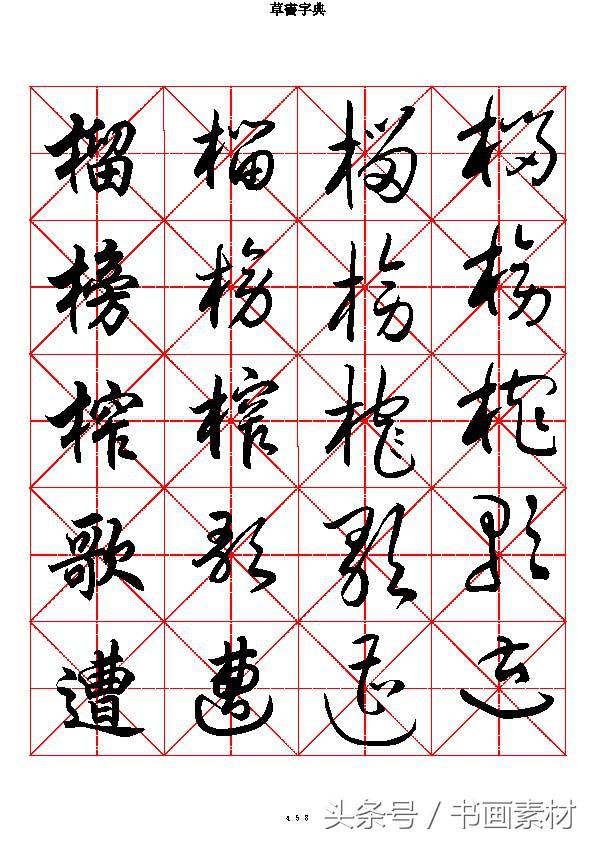 草書字典
榴 榴 榴 榴
榜 榜 榜 榜
榨 榨 榨 榨
歌 歌 歌 歌
遭 遭 遭 遭
458
头条号 / 书画素材